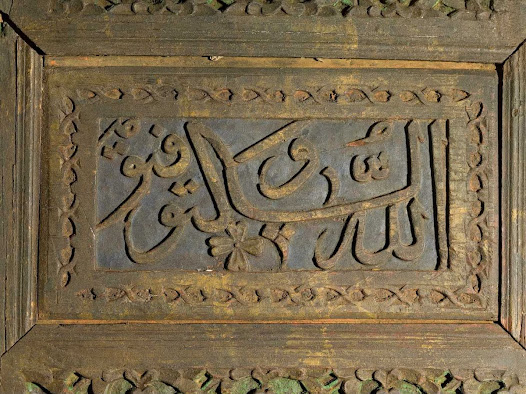 الله ولى التوفيق